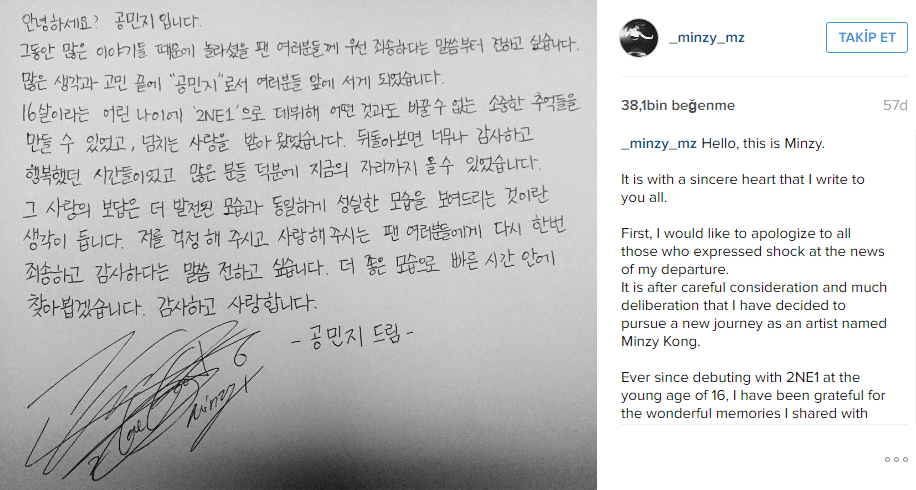 안녕하세요? 공민지 입니다.
그동안 많은 이야기들 때문에 놀라셨을 팬 여러분들께 우선 죄송하다는 말씀부터 전하고 싶습니다.
많은 생각과 고민 끝에 "공민지"로서 여러분들 앞에 서게 되었습니다.
16살이라는 어린 나이에 '2NE1'으로 데뷔해 어떤 것과도 바꿀 수 없는 소중한 추억들을
만들 수 있었고, 넘치는 사랑을 받아 왔었습니다. 뒤돌아보면 너무나 감사하고
행복했던 시간들이었고 많은 분들 덕분에 지금의 자리까지 올 수 있었습니다.
그 사랑의 보답은 더 발전된 모습과 동일하게 성실한 모습을 보여드리는 것이란
생각이 듭니다. 저를 걱정 해 주시고 사랑해 주시는 팬 여러분들에게 다시 한번
죄송하고 감사하다는 말씀 전하고 싶습니다. 더 좋은 모습으로 빠른 시간 안에
찾아뵙겠습니다. 감사하고 사랑합니다.
- 공민지 드림 -
Minzy
_minzy_mz
TAKİP ET
38,1bin beğenme
57d
_minzy_mz Hello, this is Minzy.
It is with a sincere heart that I write to
you all.
First, I would like to apologize to all
those who expressed shock at the news
of my departure.
It is after careful consideration and much
deliberation that I have decided to
pursue a new journey as an artist named
Minzy Kong.
Ever since debuting with 2NE1 at the
young age of 16, I have been grateful for
the wonderful memories I shared with